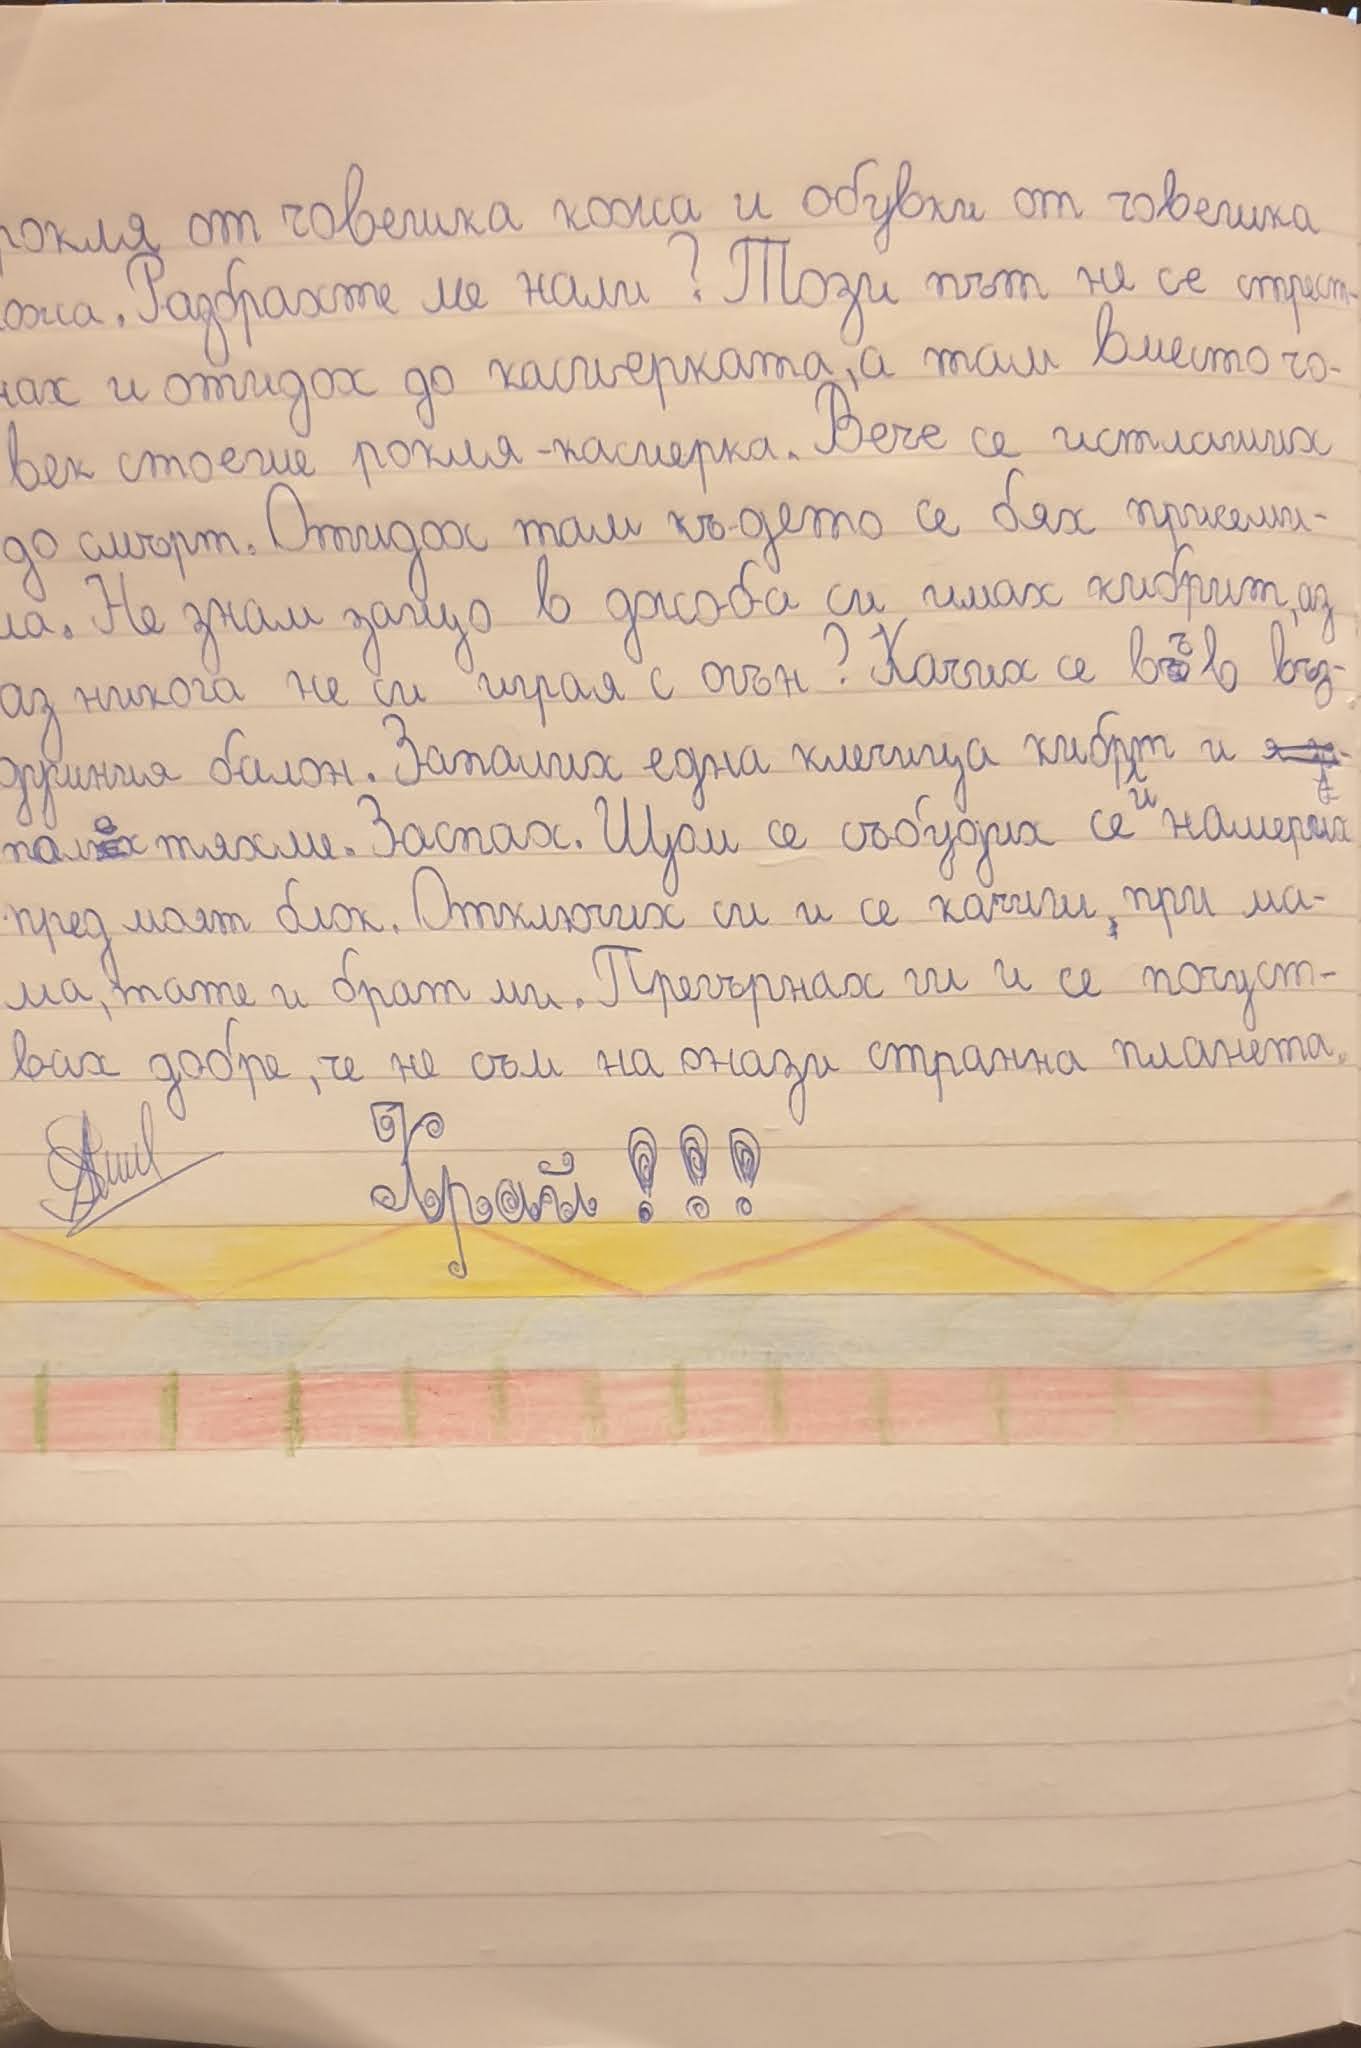 рокля от човешка кожа и обувки от човешка
ожа. Разбрахте ме нали? Този път не се стрест-
нах и отидох до касиерката, а там вместо чо-
век стоеше рокля-касиерка. Вече се исплаших
до смърт. Отидох там къ-дето се бях приземи-
ла. Не знам защо в джоба си имах кибрит, аз
аз никога не си играя с огън? Качих се във въз-
душния балон. Запалих една клечица кибрт и
тяхме. Заспах. Щом се събудих се и намерих
пред моят блок. Отключих си и се качих, при ма-
ма, тате и брат ми. Прегърнах ги и се почуст-
вах добре, че не съм на онази странна планета.
Край!!!